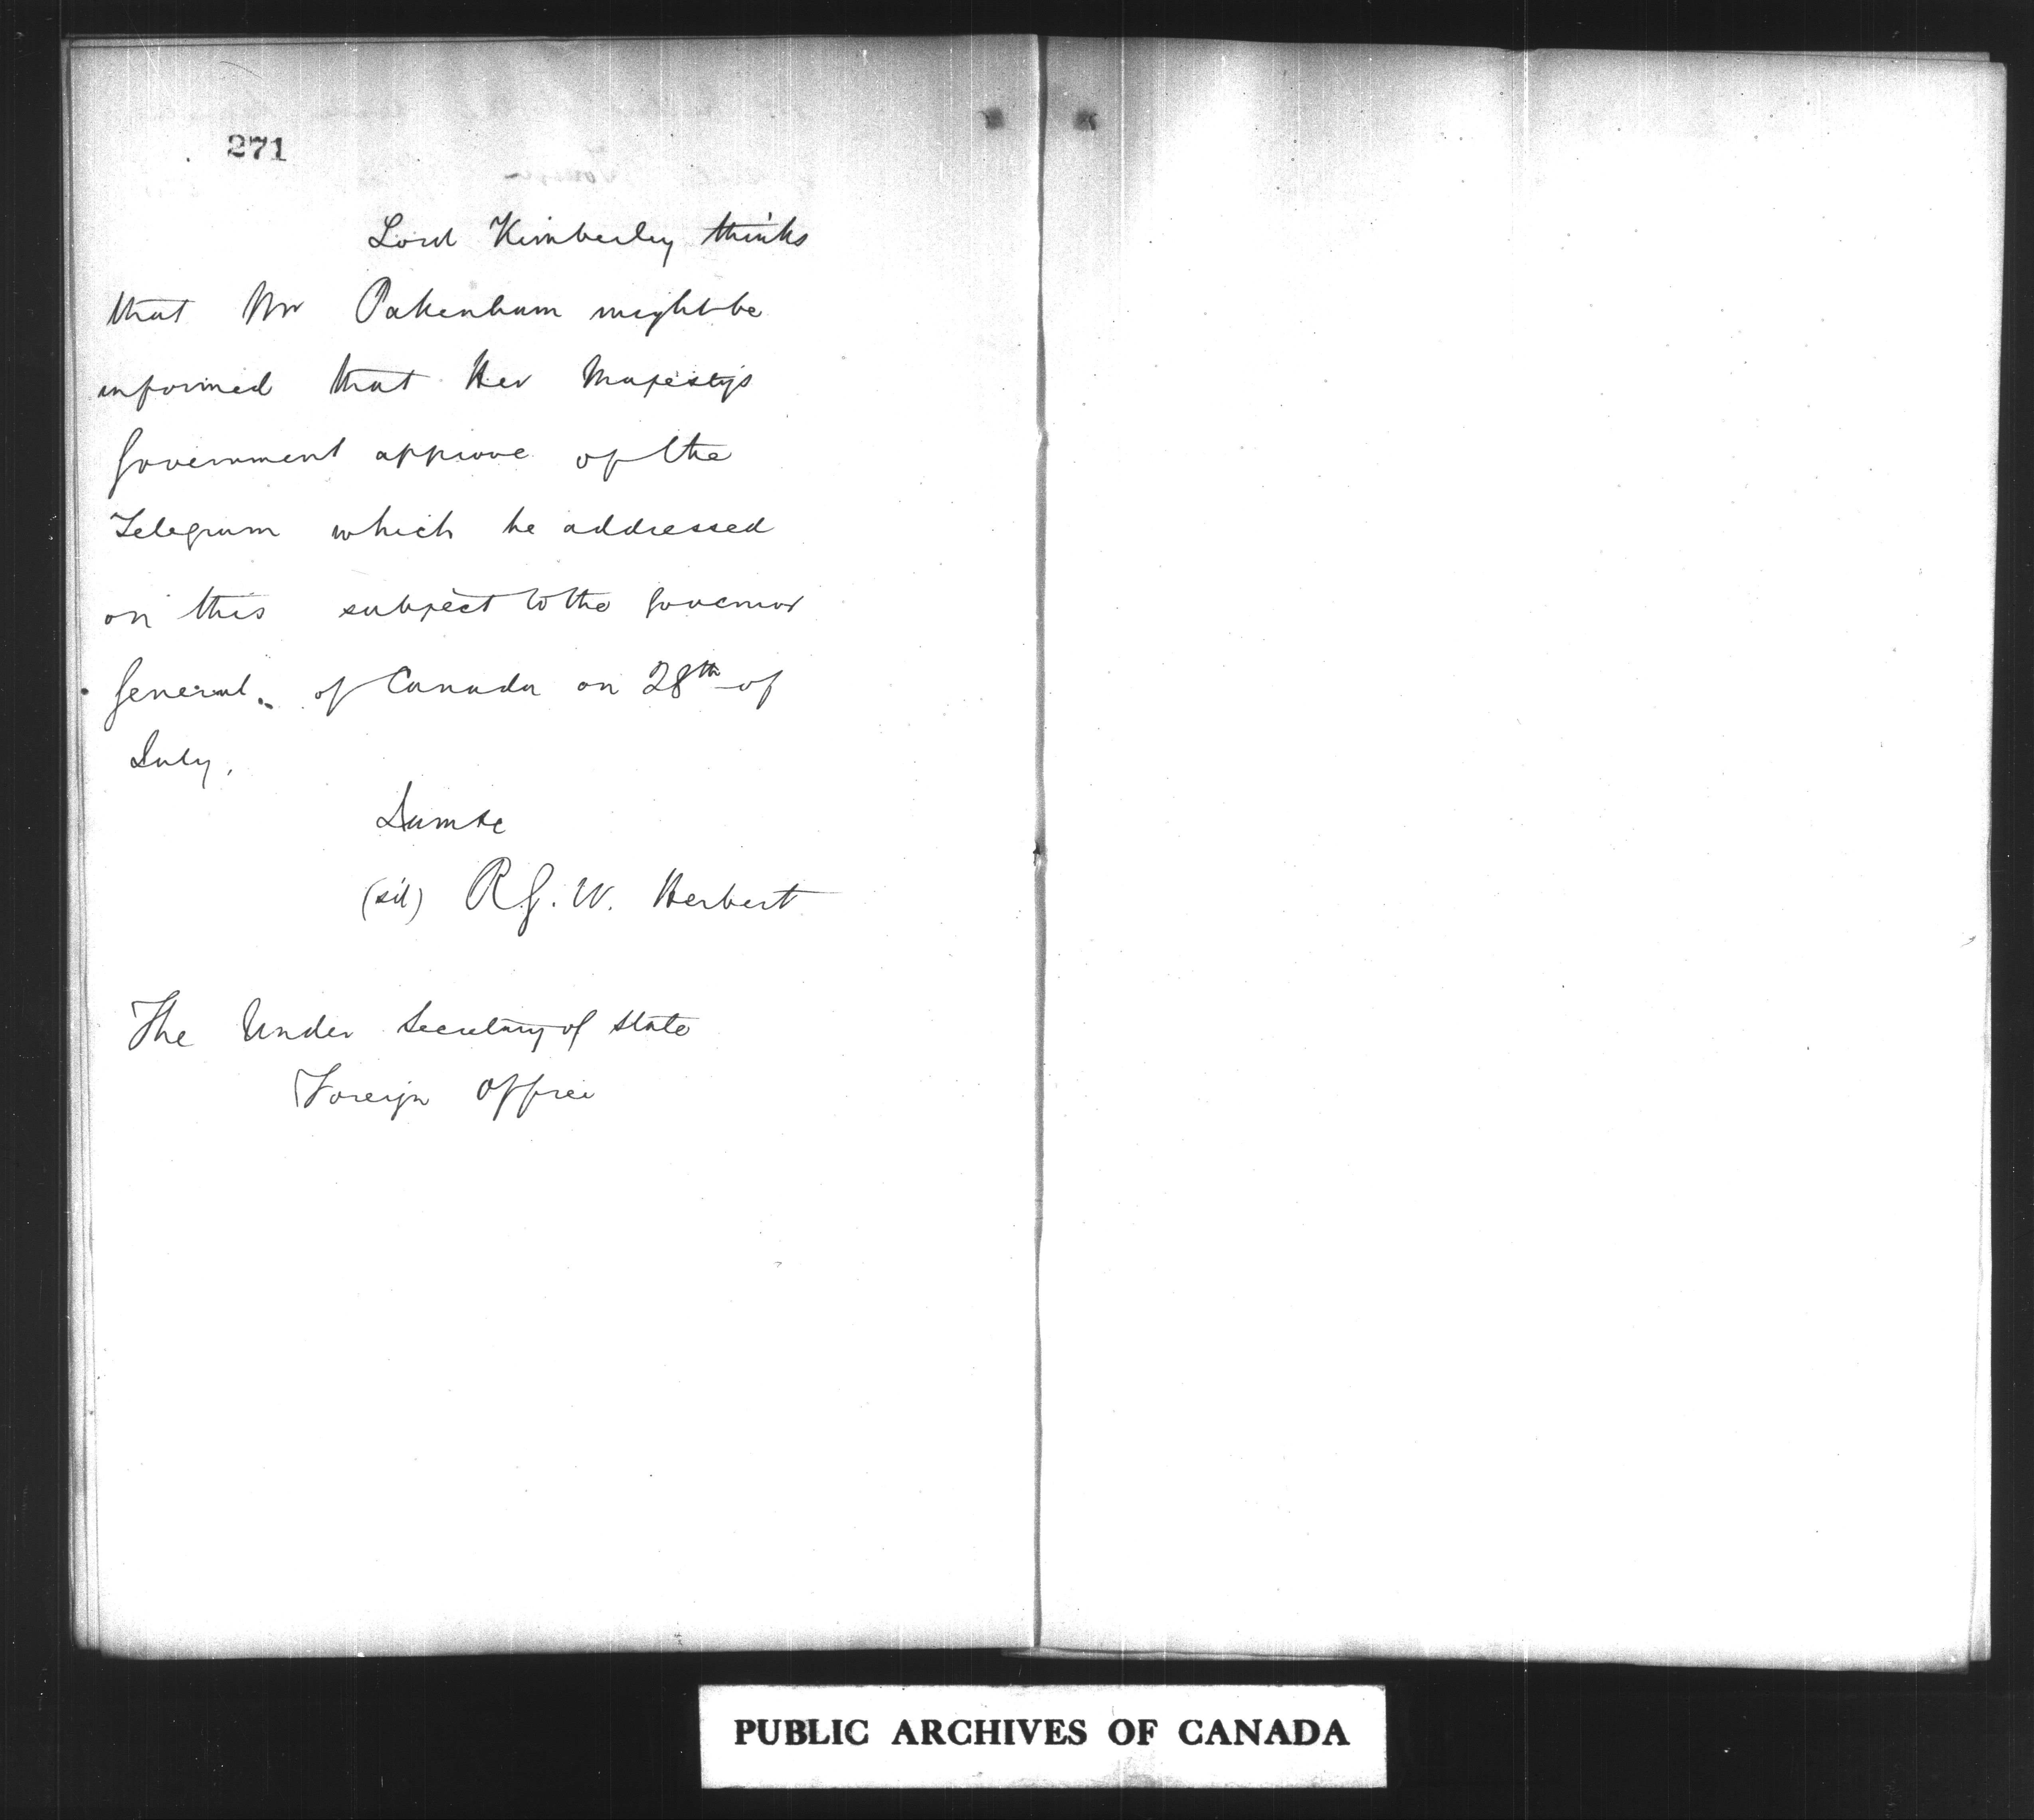 271
Lord Kimberley thinks
that Mr Pakenham might be
informed that Her Majesty's
Government approve of the
Telegram which he addressed
on this subject to the Governor
General. of Canada on 28th of
July.
I am &c
(sd) R. G. W. Herbert
The Under Secretary of State
Foreign Office
PUBLIC ARCHIVES OF CANADA